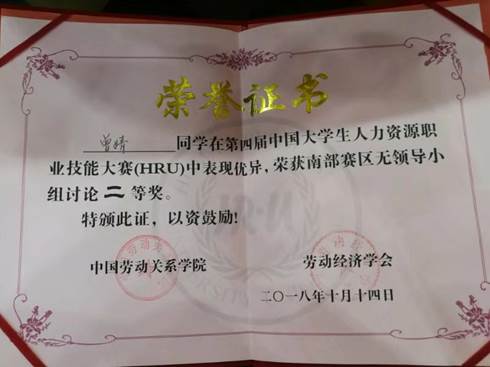 荣誉证书
曾婧同学在第四届中国大学生人力资源职
业技能大赛(HRU)中表现优异，荣获南部赛区无领导小
组讨论二等奖。
特颁此证，以资鼓励!
中国劳动关系学院 劳动经济学会
二〇一八年十月十四日